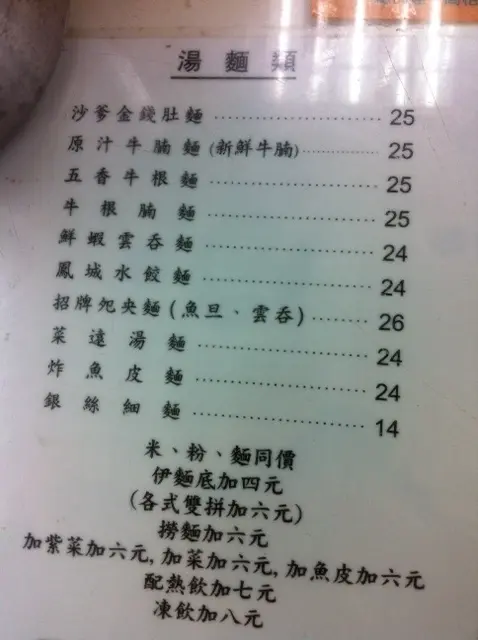 湯麵類
沙爹金錢肚麵 25
原汁牛腩麵(新鮮牛腩) 25
五香牛根麵 25
牛根腩麵 25
鮮蝦雲吞麵 24
鳳城水餃麵 24
招牌夗央麵(魚旦、雲吞) 26
菜遠湯麵 24
炸魚皮麵 24
銀絲細麵 14
米、粉、麵同價
伊麵底加四元
(各式雙拼加六元)
撈麵加六元
加紫菜加六元,加菜加六元,加魚皮加六元
配熱飲加七元
凍飲加八元